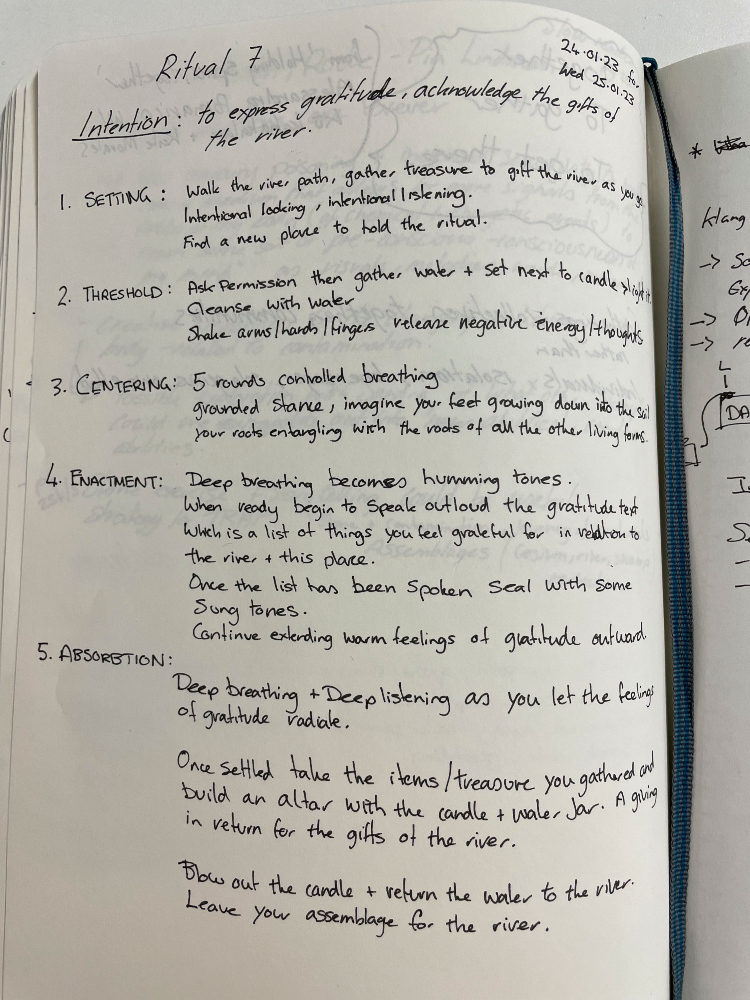 Ritual 7
24.01.23 for
Wed 25.01.23
Intention: to express gratitude, acknowledge the gifts of
the river.
1. SETTING: Walk the river path, gather treasure to gift the river as you go.
Intentional looking, intentional listening.
Find a new place to hold the ritual.
2. THRESHOLD: Ask Permission then gather water + set next to candle > light it.
Cleanse with water
Shake arms/hands/fingers release negative energy/thoughts
3. CENTERING: 5 rounds controlled breathing
grounded stance, imagine your feet growing down into the soil
your roots entangling with the roots of all the other living forms.
4. ENACTMENT: Deep breathing becomes humming tones.
When ready begin to speak outloud the gratitude text
which is a list of things you feel grateful for in relation to
the river + this place.
Once the list has been spoken seal with some
Sung tones.
Continue extending warm feelings of gratitude outward
5. ABSORBTION:
Deep breathing + Deep listening as you let the feelings
of gratitude radiate.
Once settled take the items/treasure you gathered and
build an altar with the candle + water jar. A giving
in return for the gifts of the river.
Blow out the candle + return the water to the river.
Leave your assemblage for the river.
*
klang
->
->
->
DA